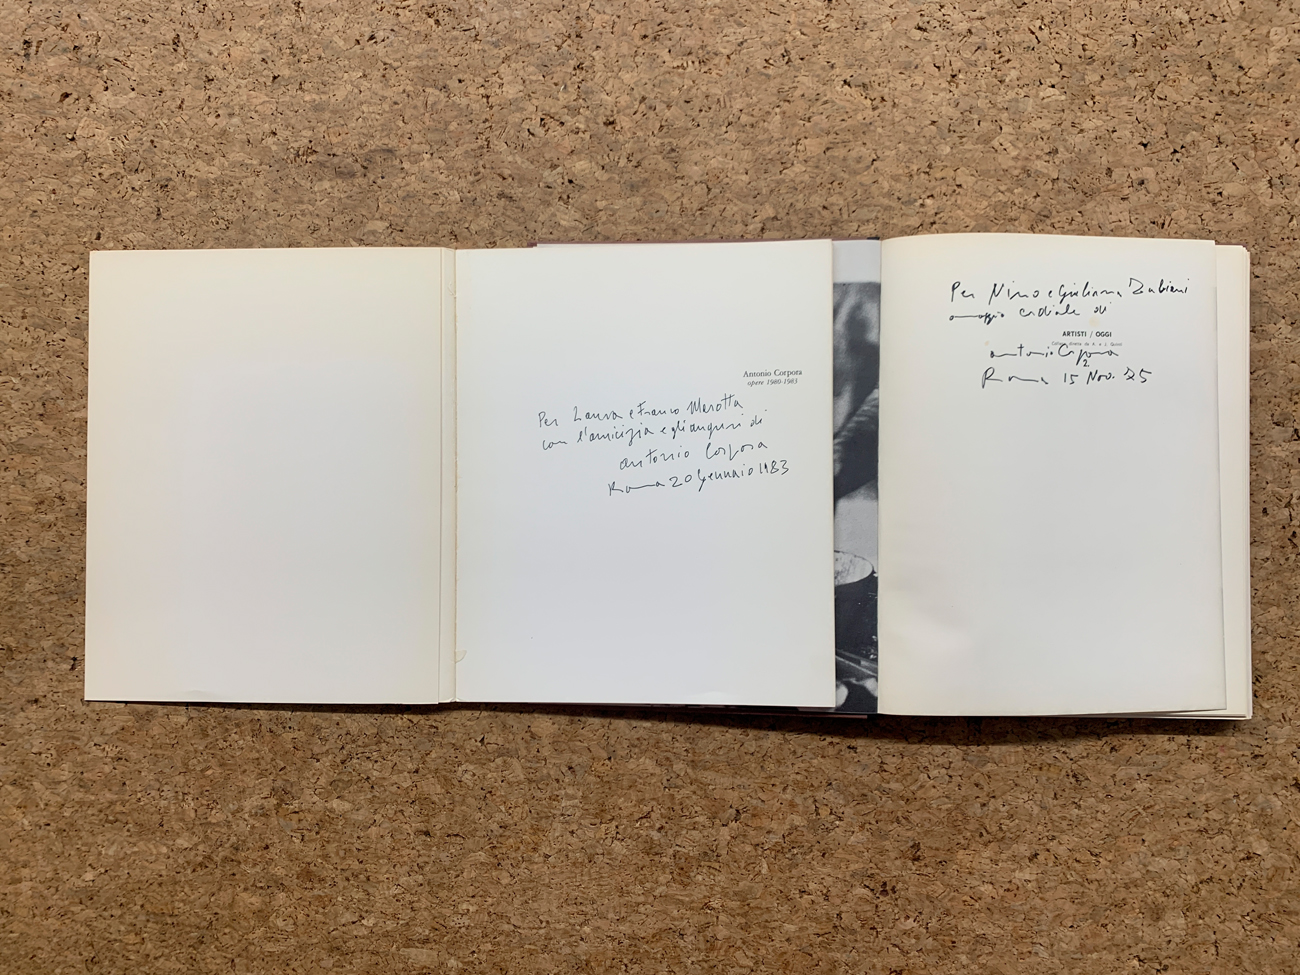 Antonio Corpora
opere 1980-1983
Per Laura e Franco Marotta
con l'amicizia e gli auguri di
Antonio Corpora
Roma 20 Gennaio 1983
Per Nino e Giuliana
omaggio cordiale di
ARTISTI / OGGI
diretta da A. e J.
antonio Corpora
2
Roma 15 Nov. 75